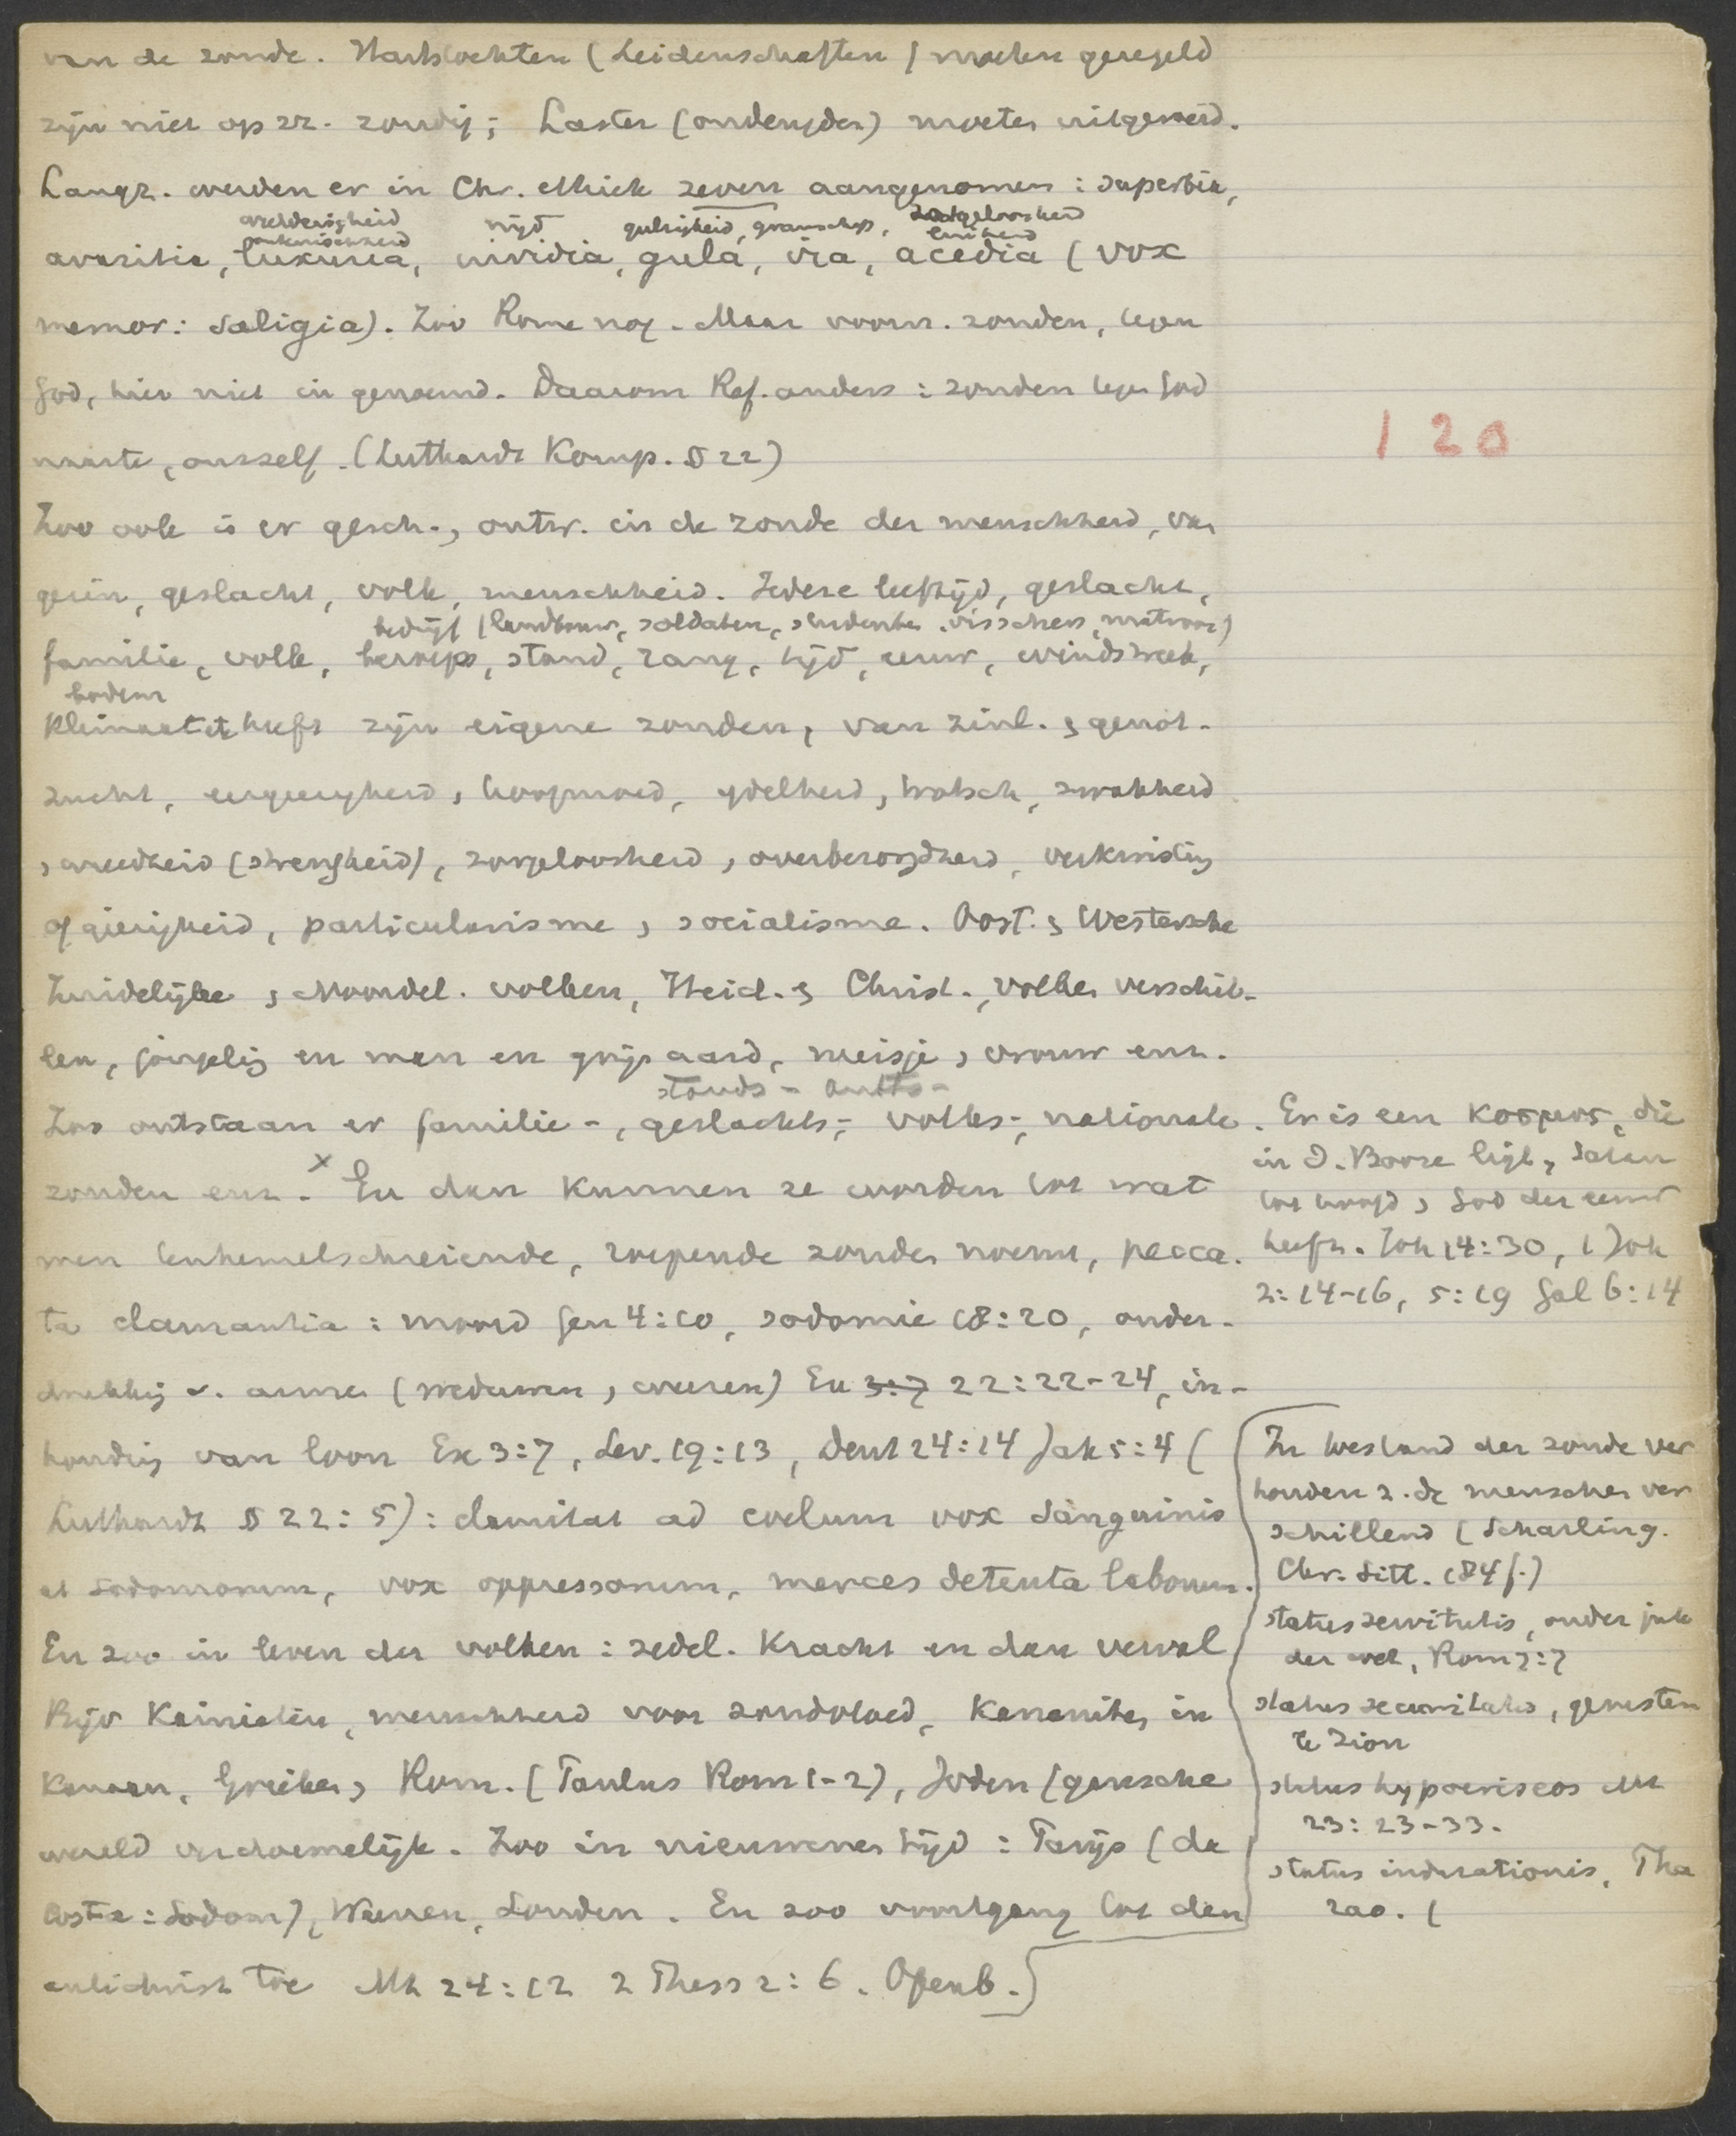 van de zonde. Hartstochten (Leidenschaften) moeten geregeld
zijn niet op zz. zondig; Laster (ondeugden) moeten uitgeroeid.
Langz. werden er in Chr. ethiek zeven aangenomen: superbia,
weelderigheid nijd gulzigheid, gramschap, zorgeloosheid
onkuischheid luiheid
avaritia, luxuria, invidia, gula, ira, acedia (vox
memor: saligia). Zoo Rome nog. Maar voorn. zonden, tegen
God, hier niet in genoemd. Daarom Ref. anders: zonden tegen God
naaste, onszelf. (Luthardt Komp. § 22)
120
Zoo ook is er gesch., ontw. in de zonde der menschheid, van
gezin, geslacht, volk, menschheid. Iedere leeftijd, geslacht,
bedrijf (landbouw, soldaten, studenten, visschers, matroos)
familie, volk, beroep, stand, rang, tijd, eeuw, windstreek,
bodem
klimaat etc heeft zijn eigene zonden, van zinl. & genot-
zucht, eergierigheid, hoogmoed, ijdelheid, trotsch, zwakheid
, wreedheid (strengheid), zorgeloosheid, overbezorgdheid, verkwisting
of gierigheid, particularisme, socialisme. Oost. & Westersche
Zuidelijke, Noordel. volken, Heid. & Christ., volken verschil-
len, jongeling en man en grijsaard, meisje, vrouw enz.
stands- ambts-
Zoo ontstaan er familie-, geslachts-, volks-, nationale
zonden enz. x En dan kunnen ze worden tot wat
men tenhemelschreiende, roepende zonden noemt, pecca-
ta clamantia: moord Gen 4:10, sodomie 18:20, onder-
drukking v. armen (weduwen, weezen) Ex 3:7 22:22-24, in-
houding van loon Ex 3:7, Lev. 19:13, Deut 24:14 Jak 5:4 (
Luthardt § 22:5): clamitat ad coelum vox sanguinis
et Sodomorum, vox oppressorum, merces detenta laborum.
En zoo in leven der volken: zedel. kracht en dan verval
Bijv Kainieten, menschheid voor zondvloed, Kananiten in
Kanaan, Grieken, Rom. (Paulus Rom 1-2), Joden (gansche
wereld verdoemelijk. Zoo in nieuweren tijd: Parijs (da
Costa: Sodom), Weenen, Londen. En zoo voortgang tot den
antichrist toe Mt 24:12 2 Thess 2:6. Openb.
. Er is een κοσμος, die
in d. Booze ligt, Satan
tot hoofd, God der eeuw
heeft. Joh 14:30, 1 Joh
2:14-16, 5:19 Gal 6:14
In toestand der zonde ver
houden z. de menschen ver
schillend (Scharling.
Chr. Sitt. 184 f.)
status servitutis, onder juk
der wet, Rom 7:7
status securitatis, gerusten
te Zion
status hypocriseos Mt
23:23-33.
status indurationis, Pha
rao. (